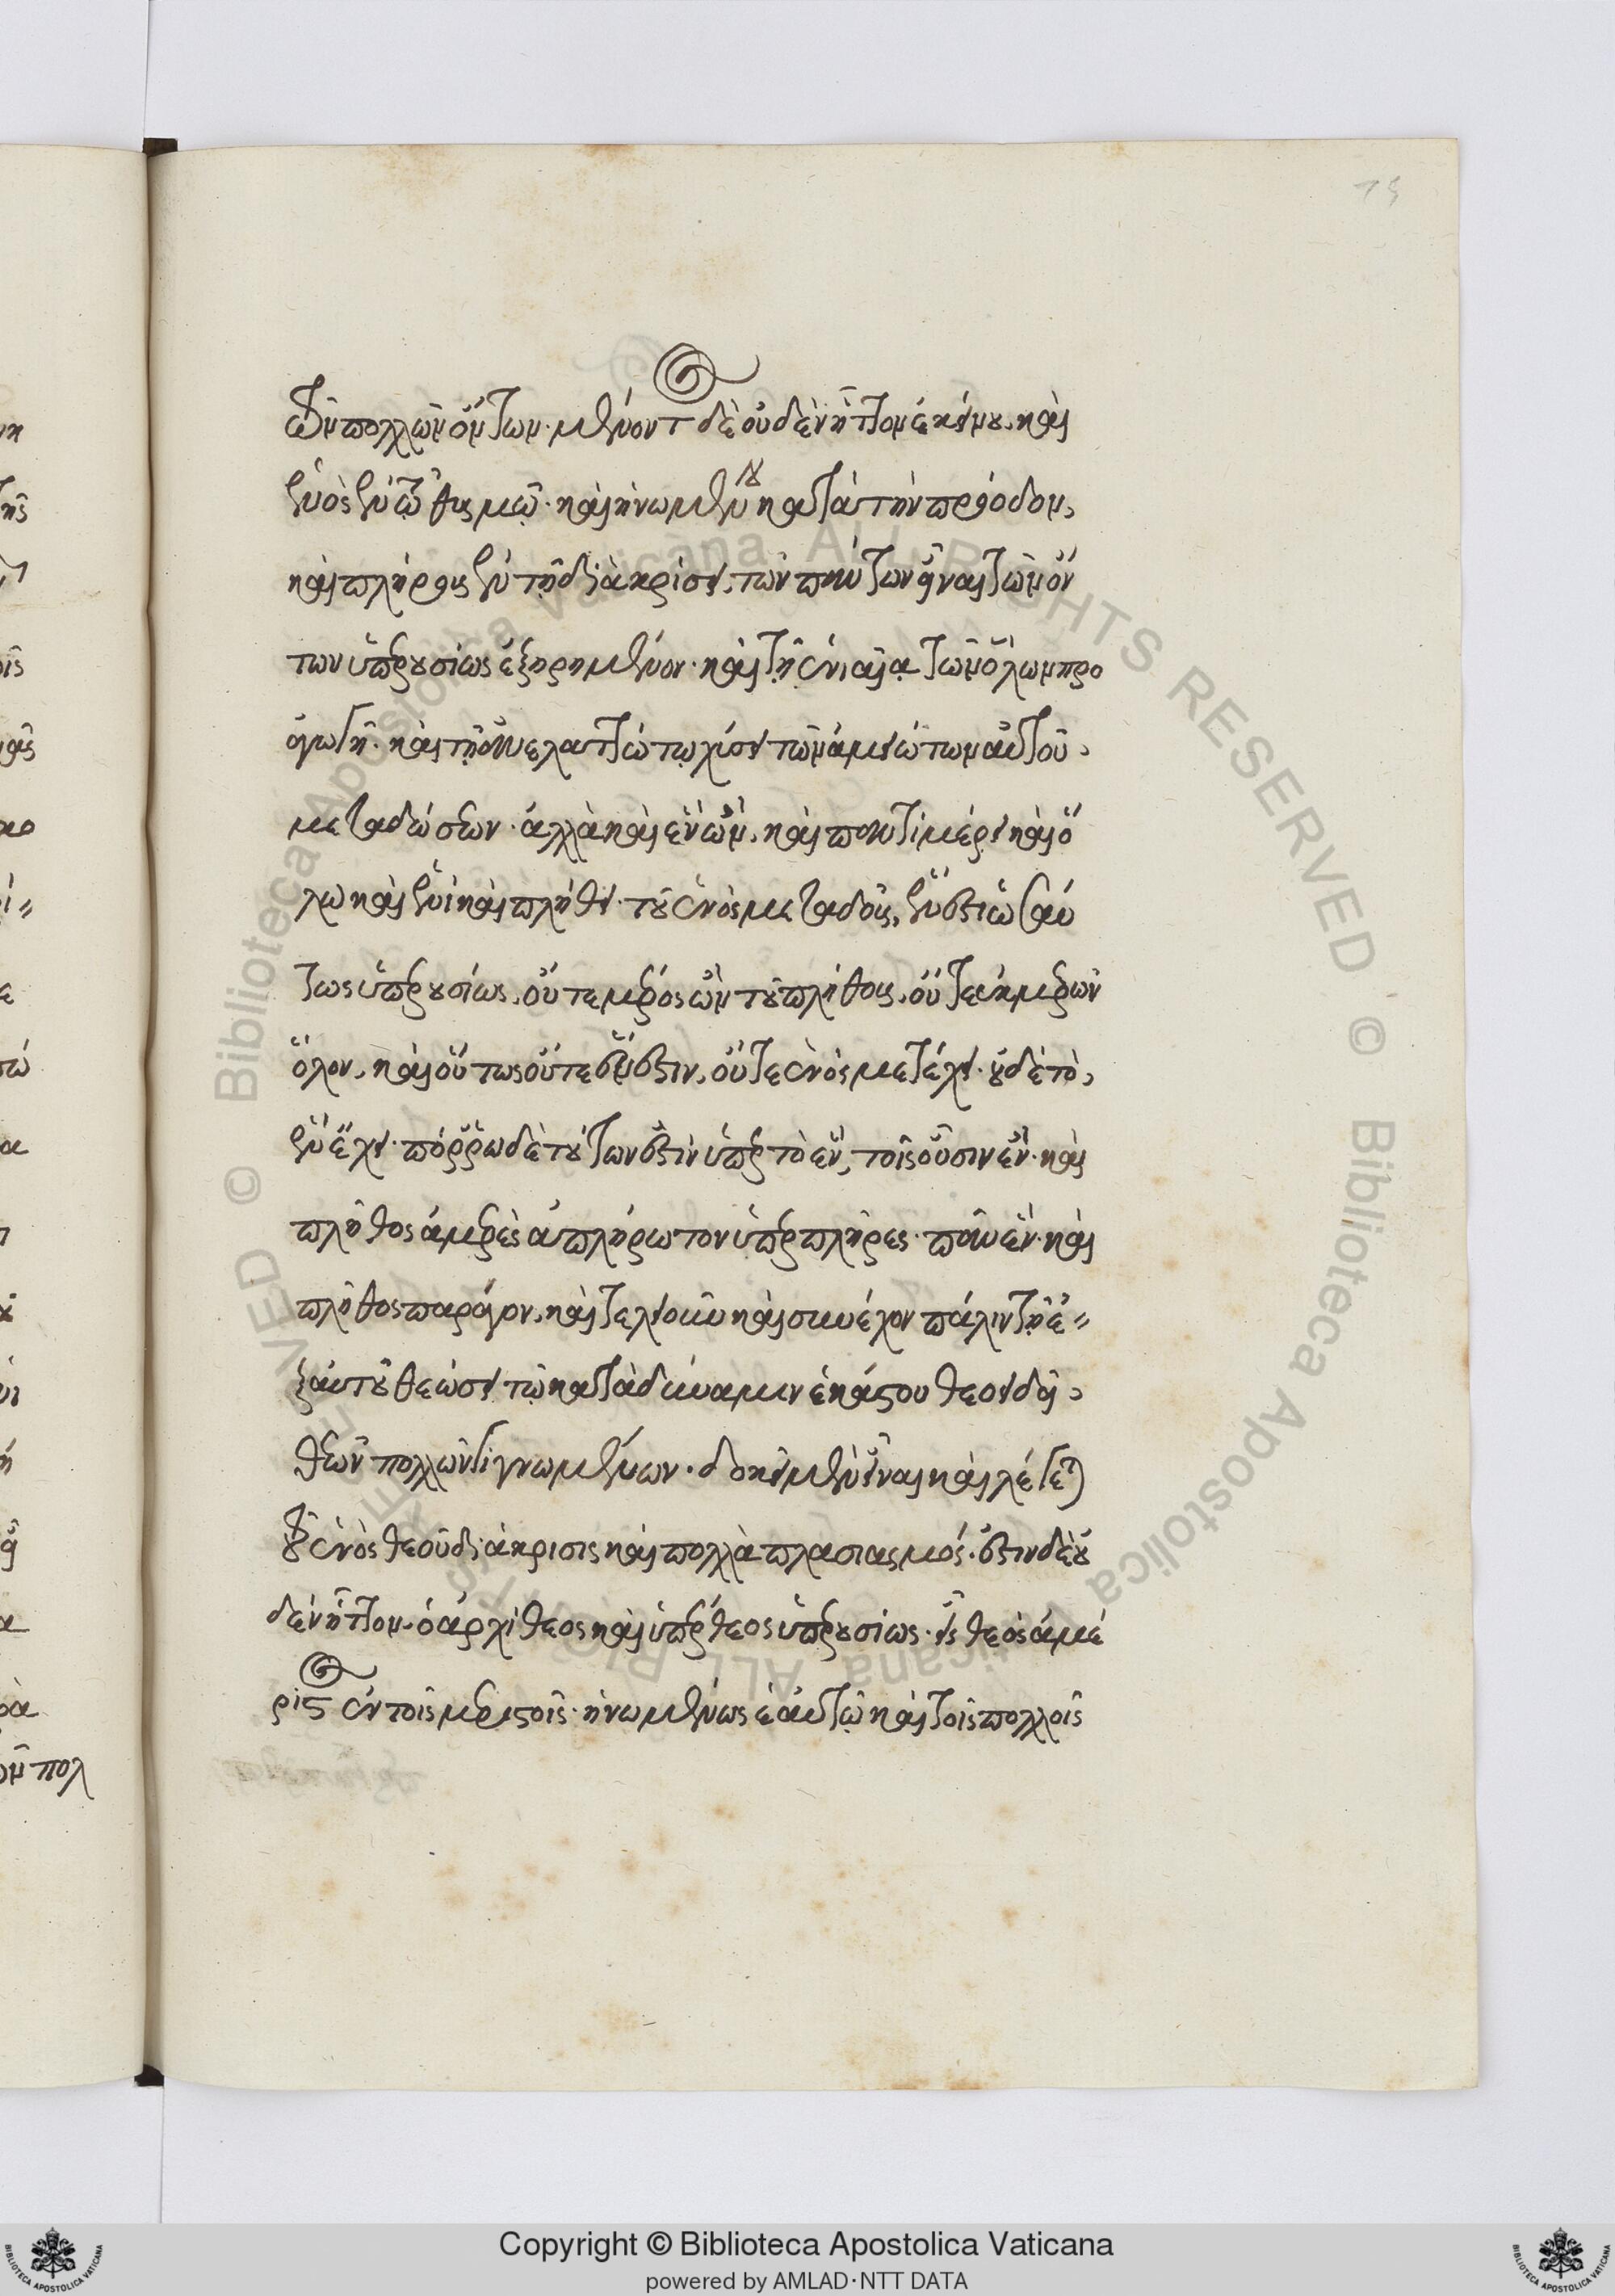 τῶν πολλῶν ὄντων· μένοντος δὲ οὐδὲν ἧττον ἐκείνου, καὶ
ἑνὸς ἐν τῷ πληθυσμῷ· καὶ ἡνωμένου κατὰ τὴν πρόοδον,
καὶ πλήρους ἐν τῇ διακρίσει, τῶν πάντων εἶναι τῶν ὄν
των ὑπερουσίως ἐξῃρημένον· καὶ τῇ ἑνιαίᾳ τῶν ὅλων προ
αγωγῇ· καὶ τῇ ἀνελαττώτῳ χύσει τῶν ἀμειώτων αὐτοῦ
μεταδώσεων· ἀλλὰ καὶ ἓν ὢν, καὶ παντὶ μέρει καὶ ὅ
λῳ καὶ ἑνὶ καὶ πλήθει· τοῦ ἑνὸς μεταδοὺς, ἕν ἐστιν ὡσαύ
τως ὑπερουσίως, οὔτε μέρος ὢν τοῦ πλήθους, οὔτε ἐκ μερῶν
ὅλον, καὶ οὕτως οὔτε ἕν ἐστιν, οὔτε ἑνὸς μετέχει· οὐδὲ τὸ
ἓν ἔχει· πόρρω δὲ τούτων ἐστὶν ὑπὲρ τὸ ἓν, τοῖς οὖσιν ἕν· καὶ
πλῆθος ἀμερὲς ἀπλήρωτον ὑπερπλῆρες· πᾶν ἓν καὶ
πλῆθος παράγον, καὶ τελειοῦν καὶ συνέχον πάλιν τῇ ἐ=
ξ αὐτοῦ θεώσει τῷ κατὰ δύναμιν ἑκάστου θεοειδεῖ
θεῶν πολλῶν γιγνωμένων· δοκεῖ μὲν εἶναι καὶ λέγεται
τοῦ ἑνὸς θεοῦ διάκρισις καὶ πολλαπλασιασμός· ἔστιν δὲ οὐ
δὲν ἧττον ὁ ἀρχίθεος καὶ ὑπέρθεος ὑπερουσίως· εἷς θεὸς ἀμέ
ριστος ἐν τοῖς μεριστοῖς· ἡνωμένως ἑαυτῷ καὶ τοῖς πολλοῖς